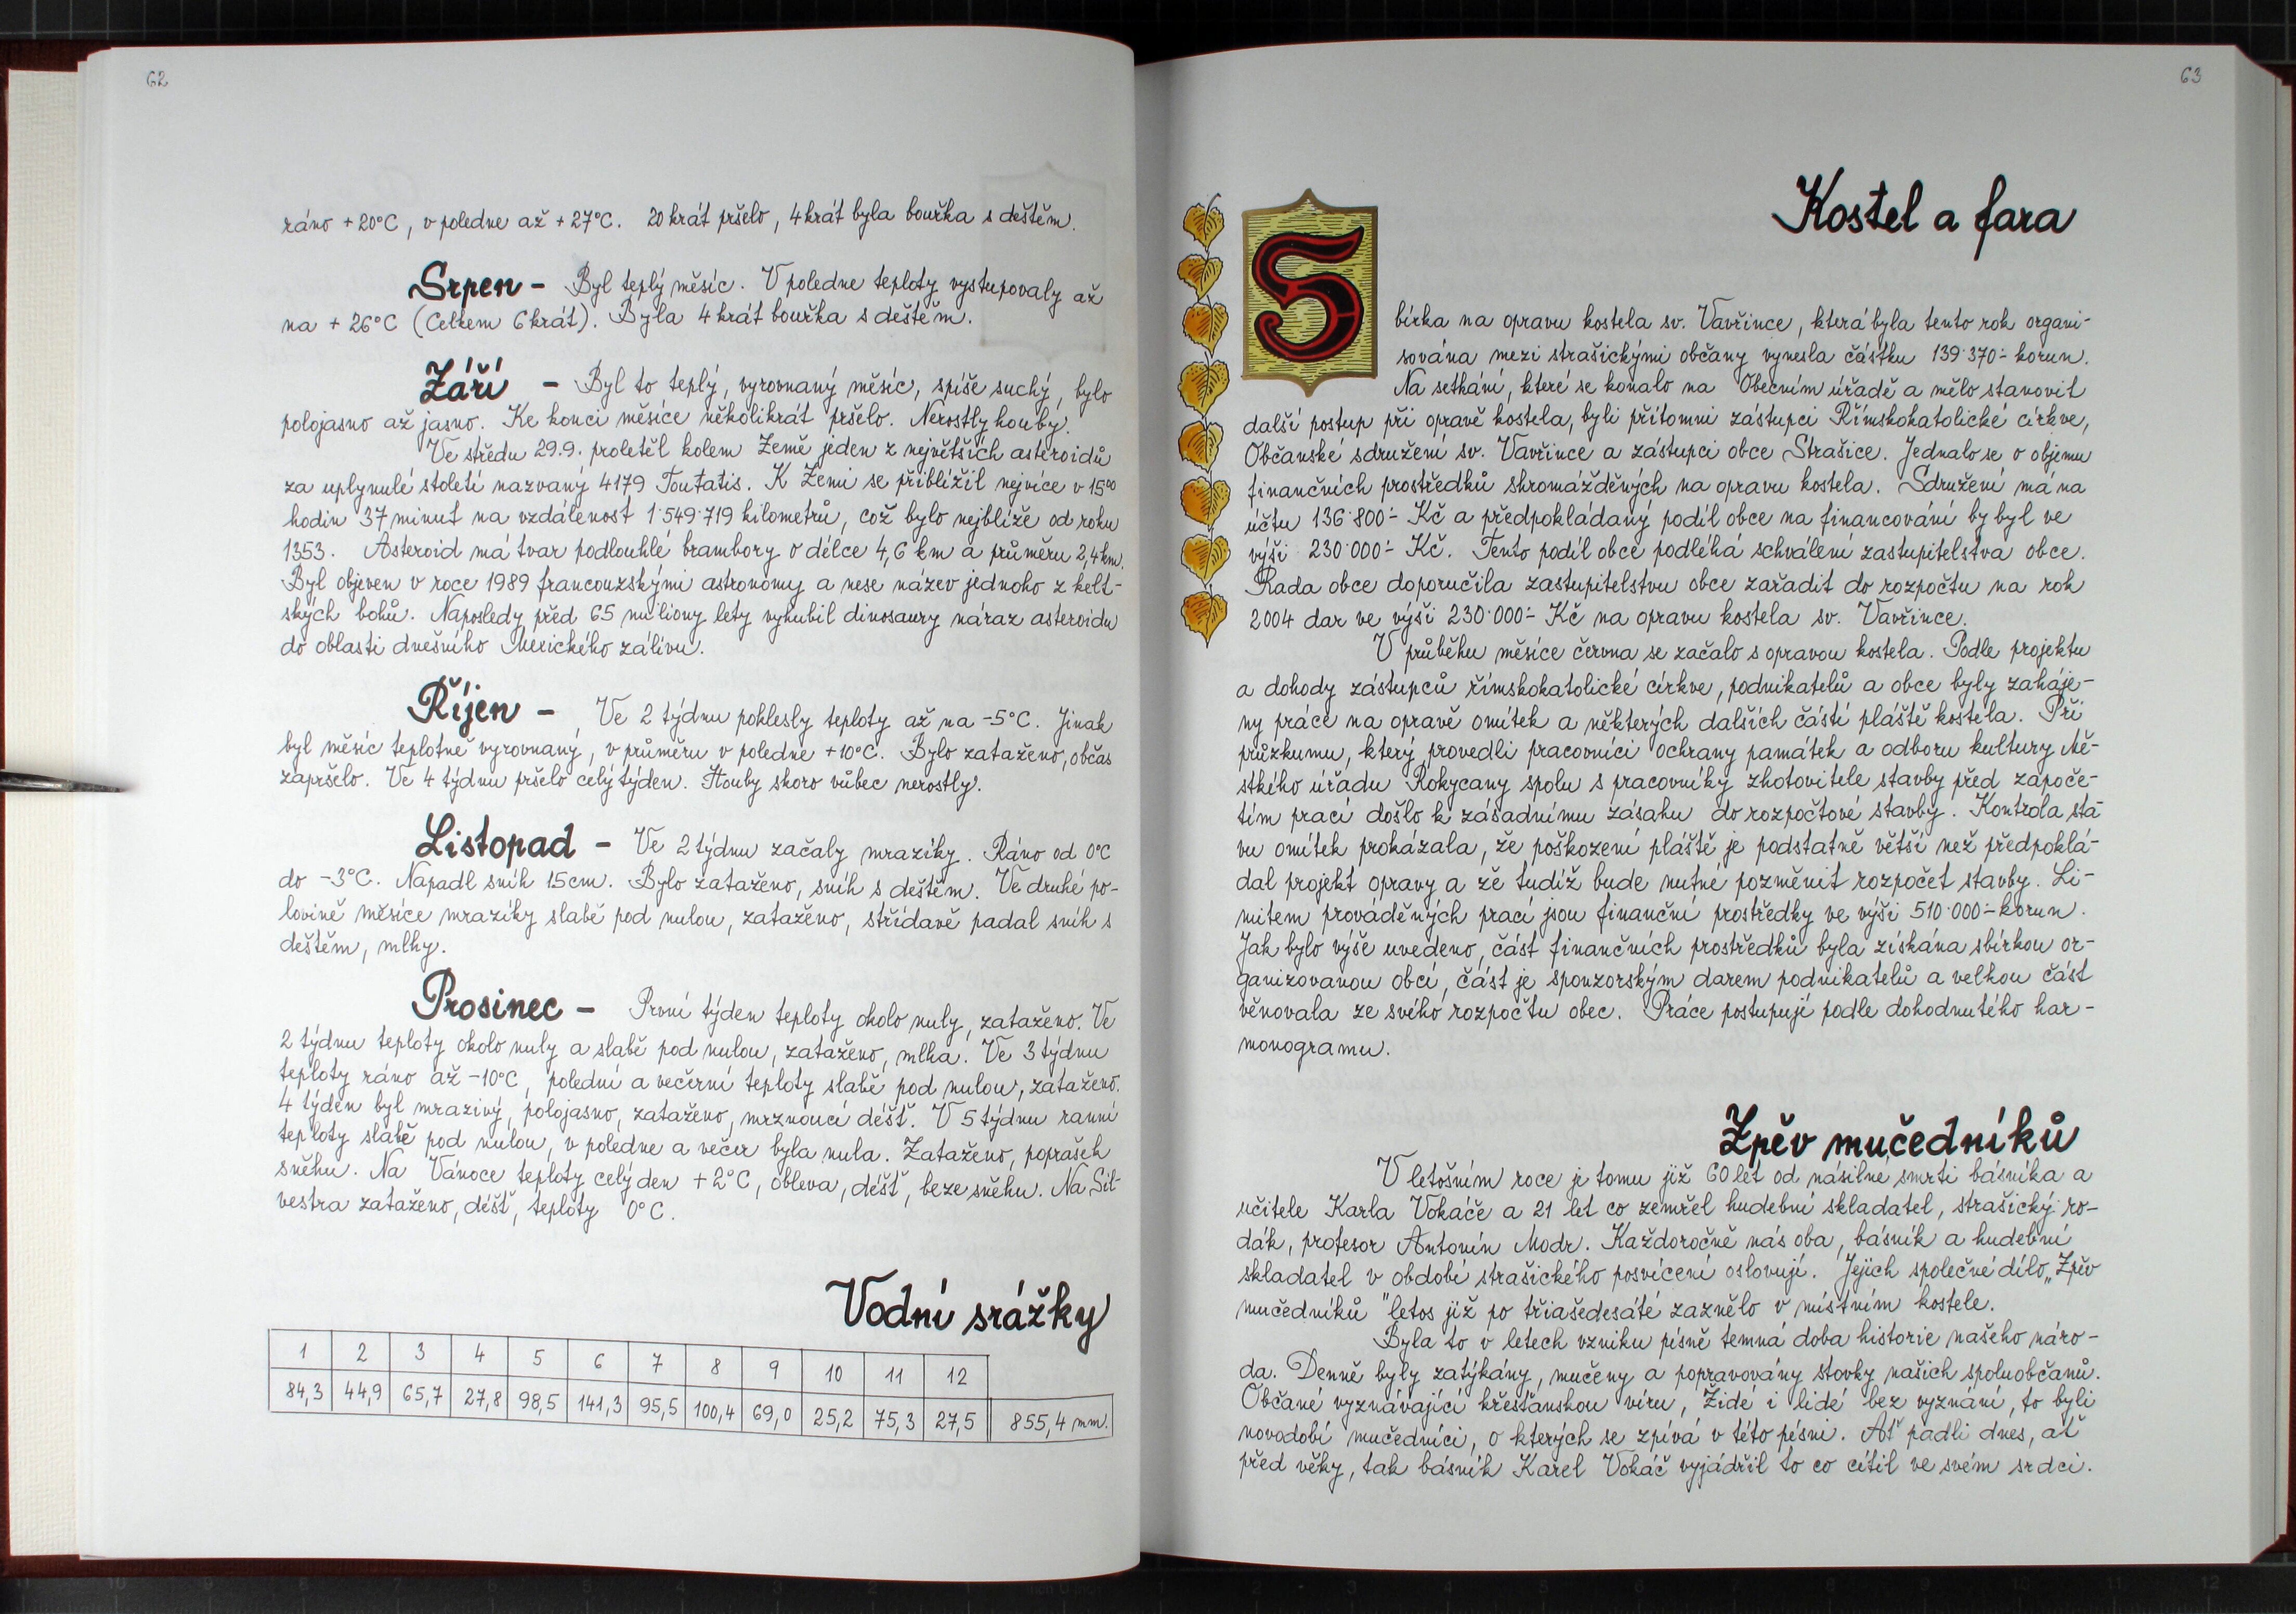 62
ráno +20°C, v poledne až +27°C. 20 krát pršelo, 4 krát byla bouřka s deštěm.
Srpen - Byl teplý měsíc. V poledne teploty vystupovaly až
na +26°C (Celkem 6 krát). Byla 4 krát bouřka s deštěm.
Září - Byl to teplý, vyrovnaný měsíc, spíše suchý, bylo
polojasno až jasno. Ke konci měsíce několikrát pršelo. Nerostly houby.
Ve středu 29.9. proletěl kolem Země jeden z největších asteroidů
za uplynulé století nazvaný 4179 Toutatis. K Zemi se přiblížil nejvíce v 15⁰⁰
hodin 37 minut na vzdálenost 1˙549˙719 kilometrů, což bylo nejblíže od roku
1353. Asteroid má tvar podlouhlé brambory o délce 4,6 km a průměru 2,4 km.
Byl objeven v roce 1989 francouzskými astronomy a nese název jednoho z kelt-
ských bohů. Naposledy před 65 miliony lety vyhubil dinosaury náraz asteroidu
do oblasti dnešního Mexického zálivu.
Říjen - Ve 2 týdnu poklesly teploty až na -5°C. Jinak
byl měsíc teplotně vyrovnaný, v průměru v poledne +10°C. Bylo zataženo, občas
zapršelo. Ve 4 týdnu pršelo celý týden. Houby skoro vůbec nerostly.
Listopad - Ve 2 týdnu začaly mrazíky. Ráno od 0°C
do -3°C. Napadl sníh 15cm. Bylo zataženo, sníh s deštěm. Ve druhé po-
lovině měsíce mrazíky slabě pod nulou, zataženo, střídavě padal sníh s
deštěm, mlhy.
Prosinec - První týden teploty okolo nuly, zataženo. Ve
2 týdnu teploty okolo nuly a slabě pod nulou, zataženo, mlha. Ve 3 týdnu
teploty ráno až -10°C, polední a večerní teploty slabě pod nulou, zataženo.
4 týden byl mrazivý, polojasno, zataženo, mrznoucí déšť. V 5 týdnu ranní
teploty slabě pod nulou, v poledne a večer byla nula. Zataženo, poprašek
sněhu. Na Vánoce teploty celý den +2°C, obleva, déšť, beze sněhu. Na Sil-
vestra zataženo, déšť, teploty 0°C.
Vodní srážky
1 2 3 4 5 6 7 8 9 10 11 12
84,3 44,9 65,7 27,8 98,5 141,3 95,5 100,4 69,0 25,2 75,3 27,5 855,4 mm.
63
Kostel a fara
S
bírka na opravu kostela sv. Vavřince, která byla tento rok organi-
sována mezi strašickými občany vynesla částku 139˙370˙- korun.
Na setkání, které se konalo na Obecním úřadě a mělo stanovit
další postup při opravě kostela, byli přítomni zástupci Římskokatolické církve,
Občanské sdružení sv. Vavřince a zástupci obce Strašice. Jednalo se o objemu
finančních prostředků shromážděných na opravu kostela. Sdružení má na
účtu 136˙800˙- Kč a předpokládaný podíl obce na financování by byl ve
výši 230˙000˙- Kč. Tento podíl obce podléhá schválení zastupitelstva obce.
Rada obce doporučila zastupitelstvu obce zařadit do rozpočtu na rok
2004 dar ve výši 230˙000˙- Kč na opravu kostela sv. Vavřince.
V průběhu měsíce června se začalo s opravou kostela. Podle projektu
a dohody zástupců římskokatolické církve, podnikatelů a obce byly zaháje-
ny práce na opravě omítek a některých dalších částí pláště kostela. Při
průzkumu, který provedli pracovníci ochrany památek a odboru kultury Mě-
stkého úřadu Rokycany spolu s pracovníky zhotovitele stavby před započe-
tím prací došlo k zásadnímu zásahu do rozpočtové stavby. Kontrola sta-
vu omítek prokázala, že poškození pláště je podstatně větší než předpoklá-
dal projekt opravy a že tudíž bude nutné pozměnit rozpočet stavby. Li-
mitem prováděných prací jsou finanční prostředky ve výši 510˙000˙- korun.
Jak bylo výše uvedeno, část finančních prostředků byla získána sbírkou or-
ganizovanou obcí, část je sponzorským darem podnikatelů a velkou část
věnovala ze svého rozpočtu obec. Práce postupují podle dohodnutého har-
monogramu.
Zpěv mučedníků
V letošním roce je tomu již 60 let od násilné smrti básníka a
učitele Karla Vokáče a 21 let co zemřel hudební skladatel, strašický ro-
dák, profesor Antonín Modr. Každoročně nás oba, básník a hudební
skladatel v období strašického posvícení oslovují. Jejich společné dílo „Zpěv
mučedníků" letos již po třiašedesáté zaznělo v místním kostele.
Byla to v letech vzniku písně temná doba historie našeho náro-
da. Denně byly zatýkány, mučeny a popravovány stovky našich spoluobčanů.
Občané vyznávající křesťanskou víru, Židé i lidé bez vyznání, to byli
novodobí mučedníci, o kterých se zpívá v této písni. Ať padli dnes, ať
před věky, tak básník Karel Vokáč vyjádřil to co cítil ve svém srdci.